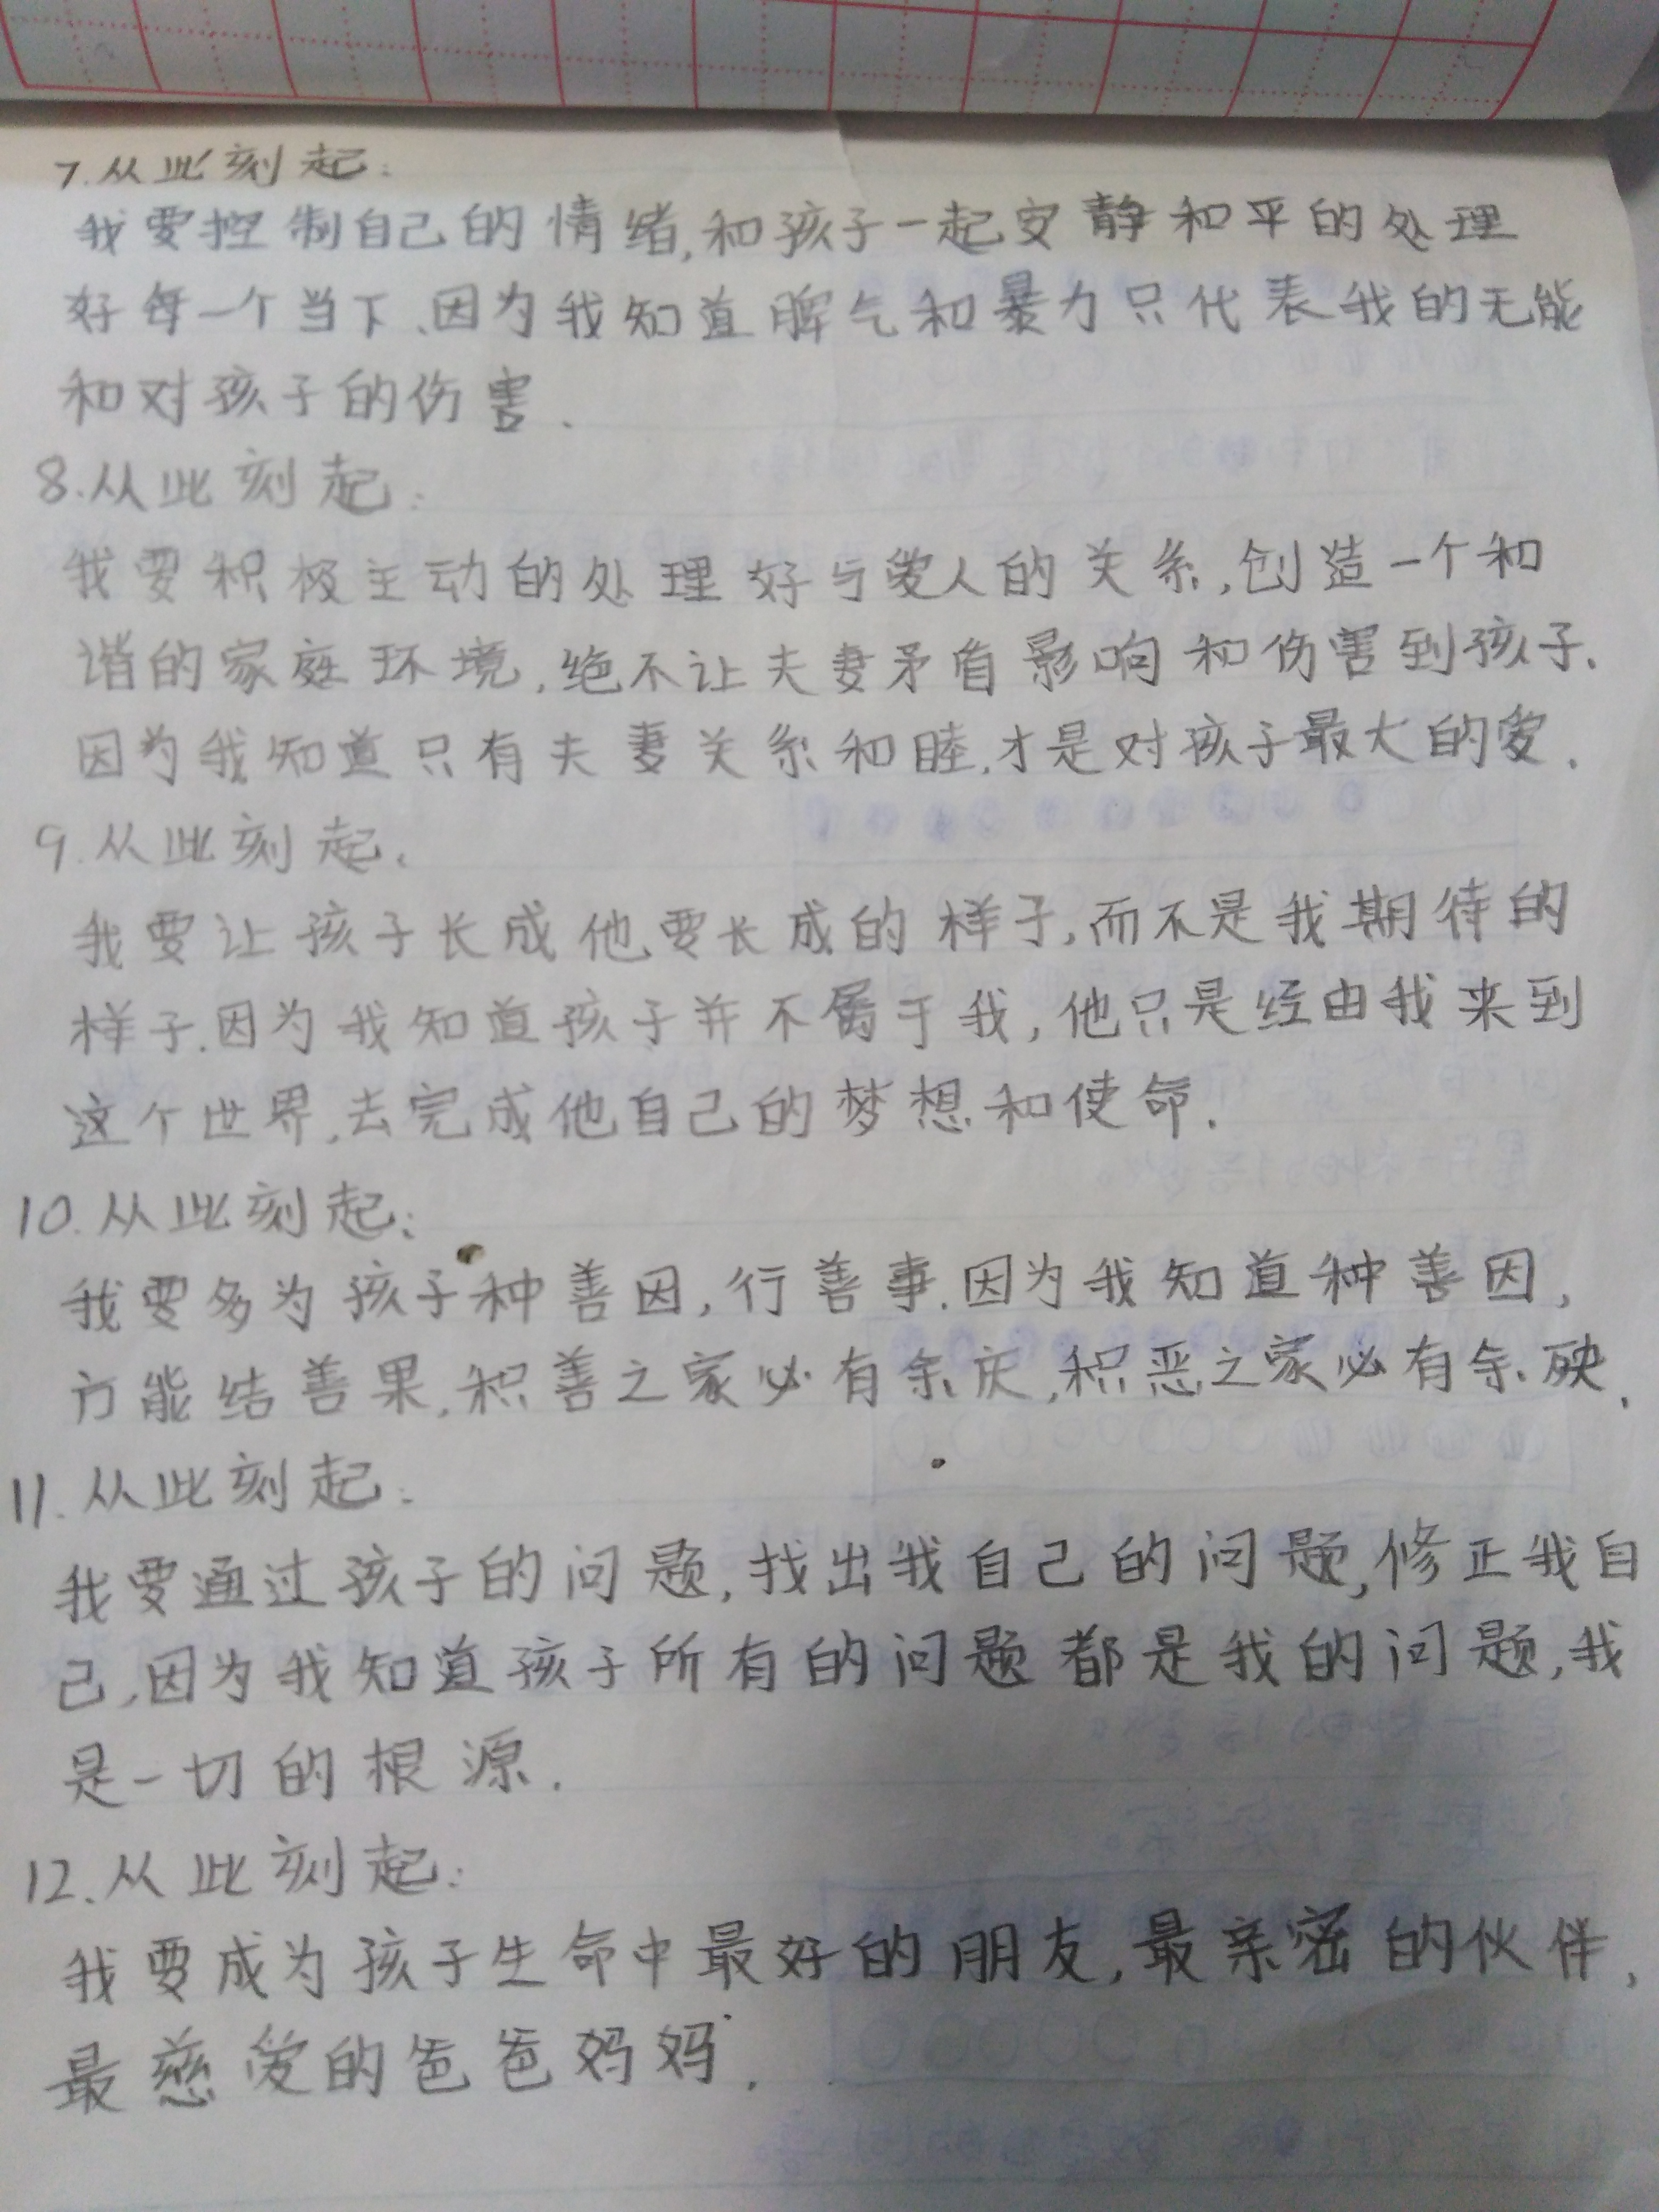 7.从此刻起:
我要控制自己的情绪,和孩子一起安静和平的处理
好每一个当下.因为我知道脾气和暴力只代表我的无能
和对孩子的伤害.
8.从此刻起:
我要积极主动的处理好与爱人的关系,创造一个和
谐的家庭环境,绝不让夫妻矛盾影响和伤害到孩子.
因为我知道只有夫妻关系和睦,才是对孩子最大的爱.
9.从此刻起:
我要让孩子长成他要长成的样子,而不是我期待的
样子.因为我知道孩子并不属于我,他只是经由我来到
这个世界,去完成他自己的梦想和使命.
10.从此刻起:
我要多为孩子种善因,行善事.因为我知道种善因,
方能结善果,积善之家必有余庆,积恶之家必有余殃.
11.从此刻起:
我要通过孩子的问题,找出我自己的问题,修正我自
己,因为我知道孩子所有的问题都是我的问题,我
是一切的根源.
12.从此刻起:
我要成为孩子生命中最好的朋友,最亲密的伙伴,
最慈爱的爸爸妈妈.